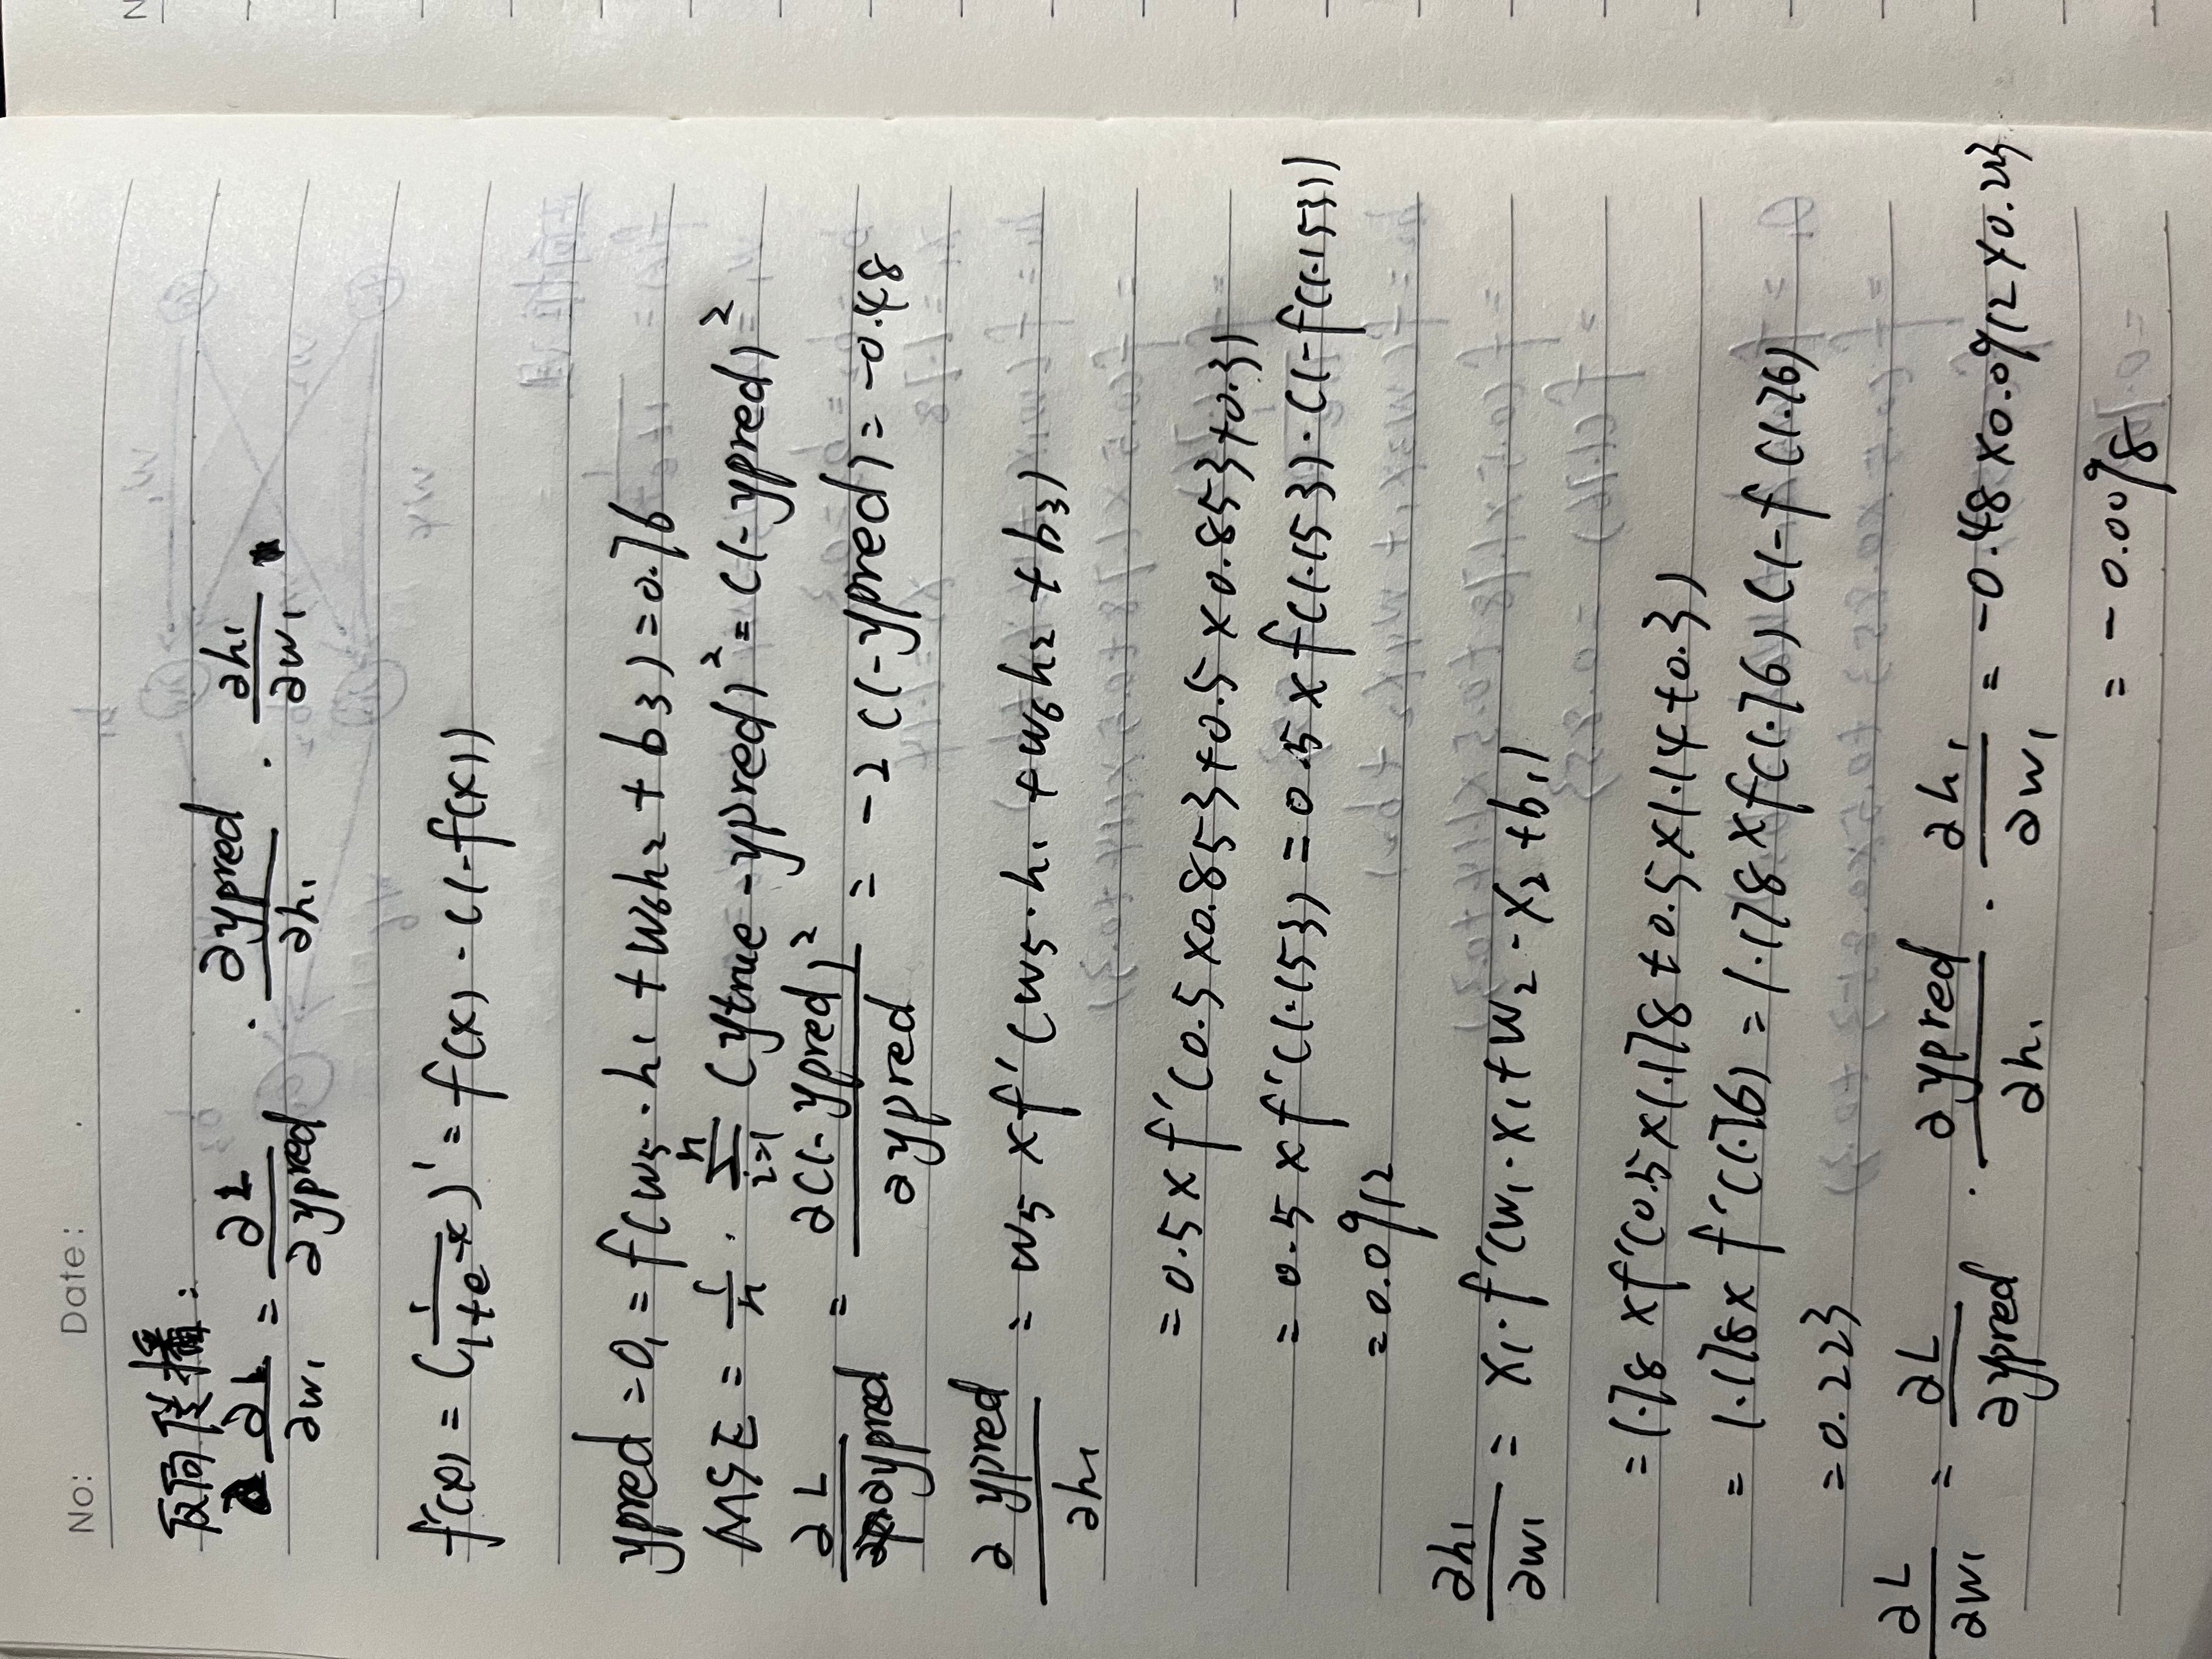 No: Date: . .
反向传播:
∂L/∂w₁ = ∂L/∂ypred · ∂ypred/∂h₁ · ∂h₁/∂w₁
f'(x) = (1/(1+e^-x))' = f(x) · (1-f(x))
ypred = o₁ = f(w₅·h₁ + w₆h₂ + b₃) = 0.76
MSE = 1/n · Σ_{i=1}^{n} (ytrue - ypred)² = (1-ypred)²
∂L/∂ypred = ∂(1-ypred)²/∂ypred = -2(1-ypred) = -0.48
∂ypred/∂h₁ = w₅ × f'(w₅·h₁ + w₆h₂ + b₃)
= 0.5 × f'(0.5×0.853+0.5×0.853+0.3)
= 0.5 × f'(1.153) = 0.5 × f(1.153)·(1-f(1.153))
= 0.0912
∂h₁/∂w₁ = x₁·f'(w₁·x₁+w₂·x₂+b₁)
= 1.78 × f'(0.5×1.178+0.5×1.14+0.3)
= 1.178× f'(1.76) = 1.178×f(1.76)(1-f(1.76)
= 0.223
∂L/∂w₁ = ∂L/∂ypred · ∂ypred/∂h₁ · ∂h₁/∂w₁ = -0.48×0.0912×0.223
= -0.0098